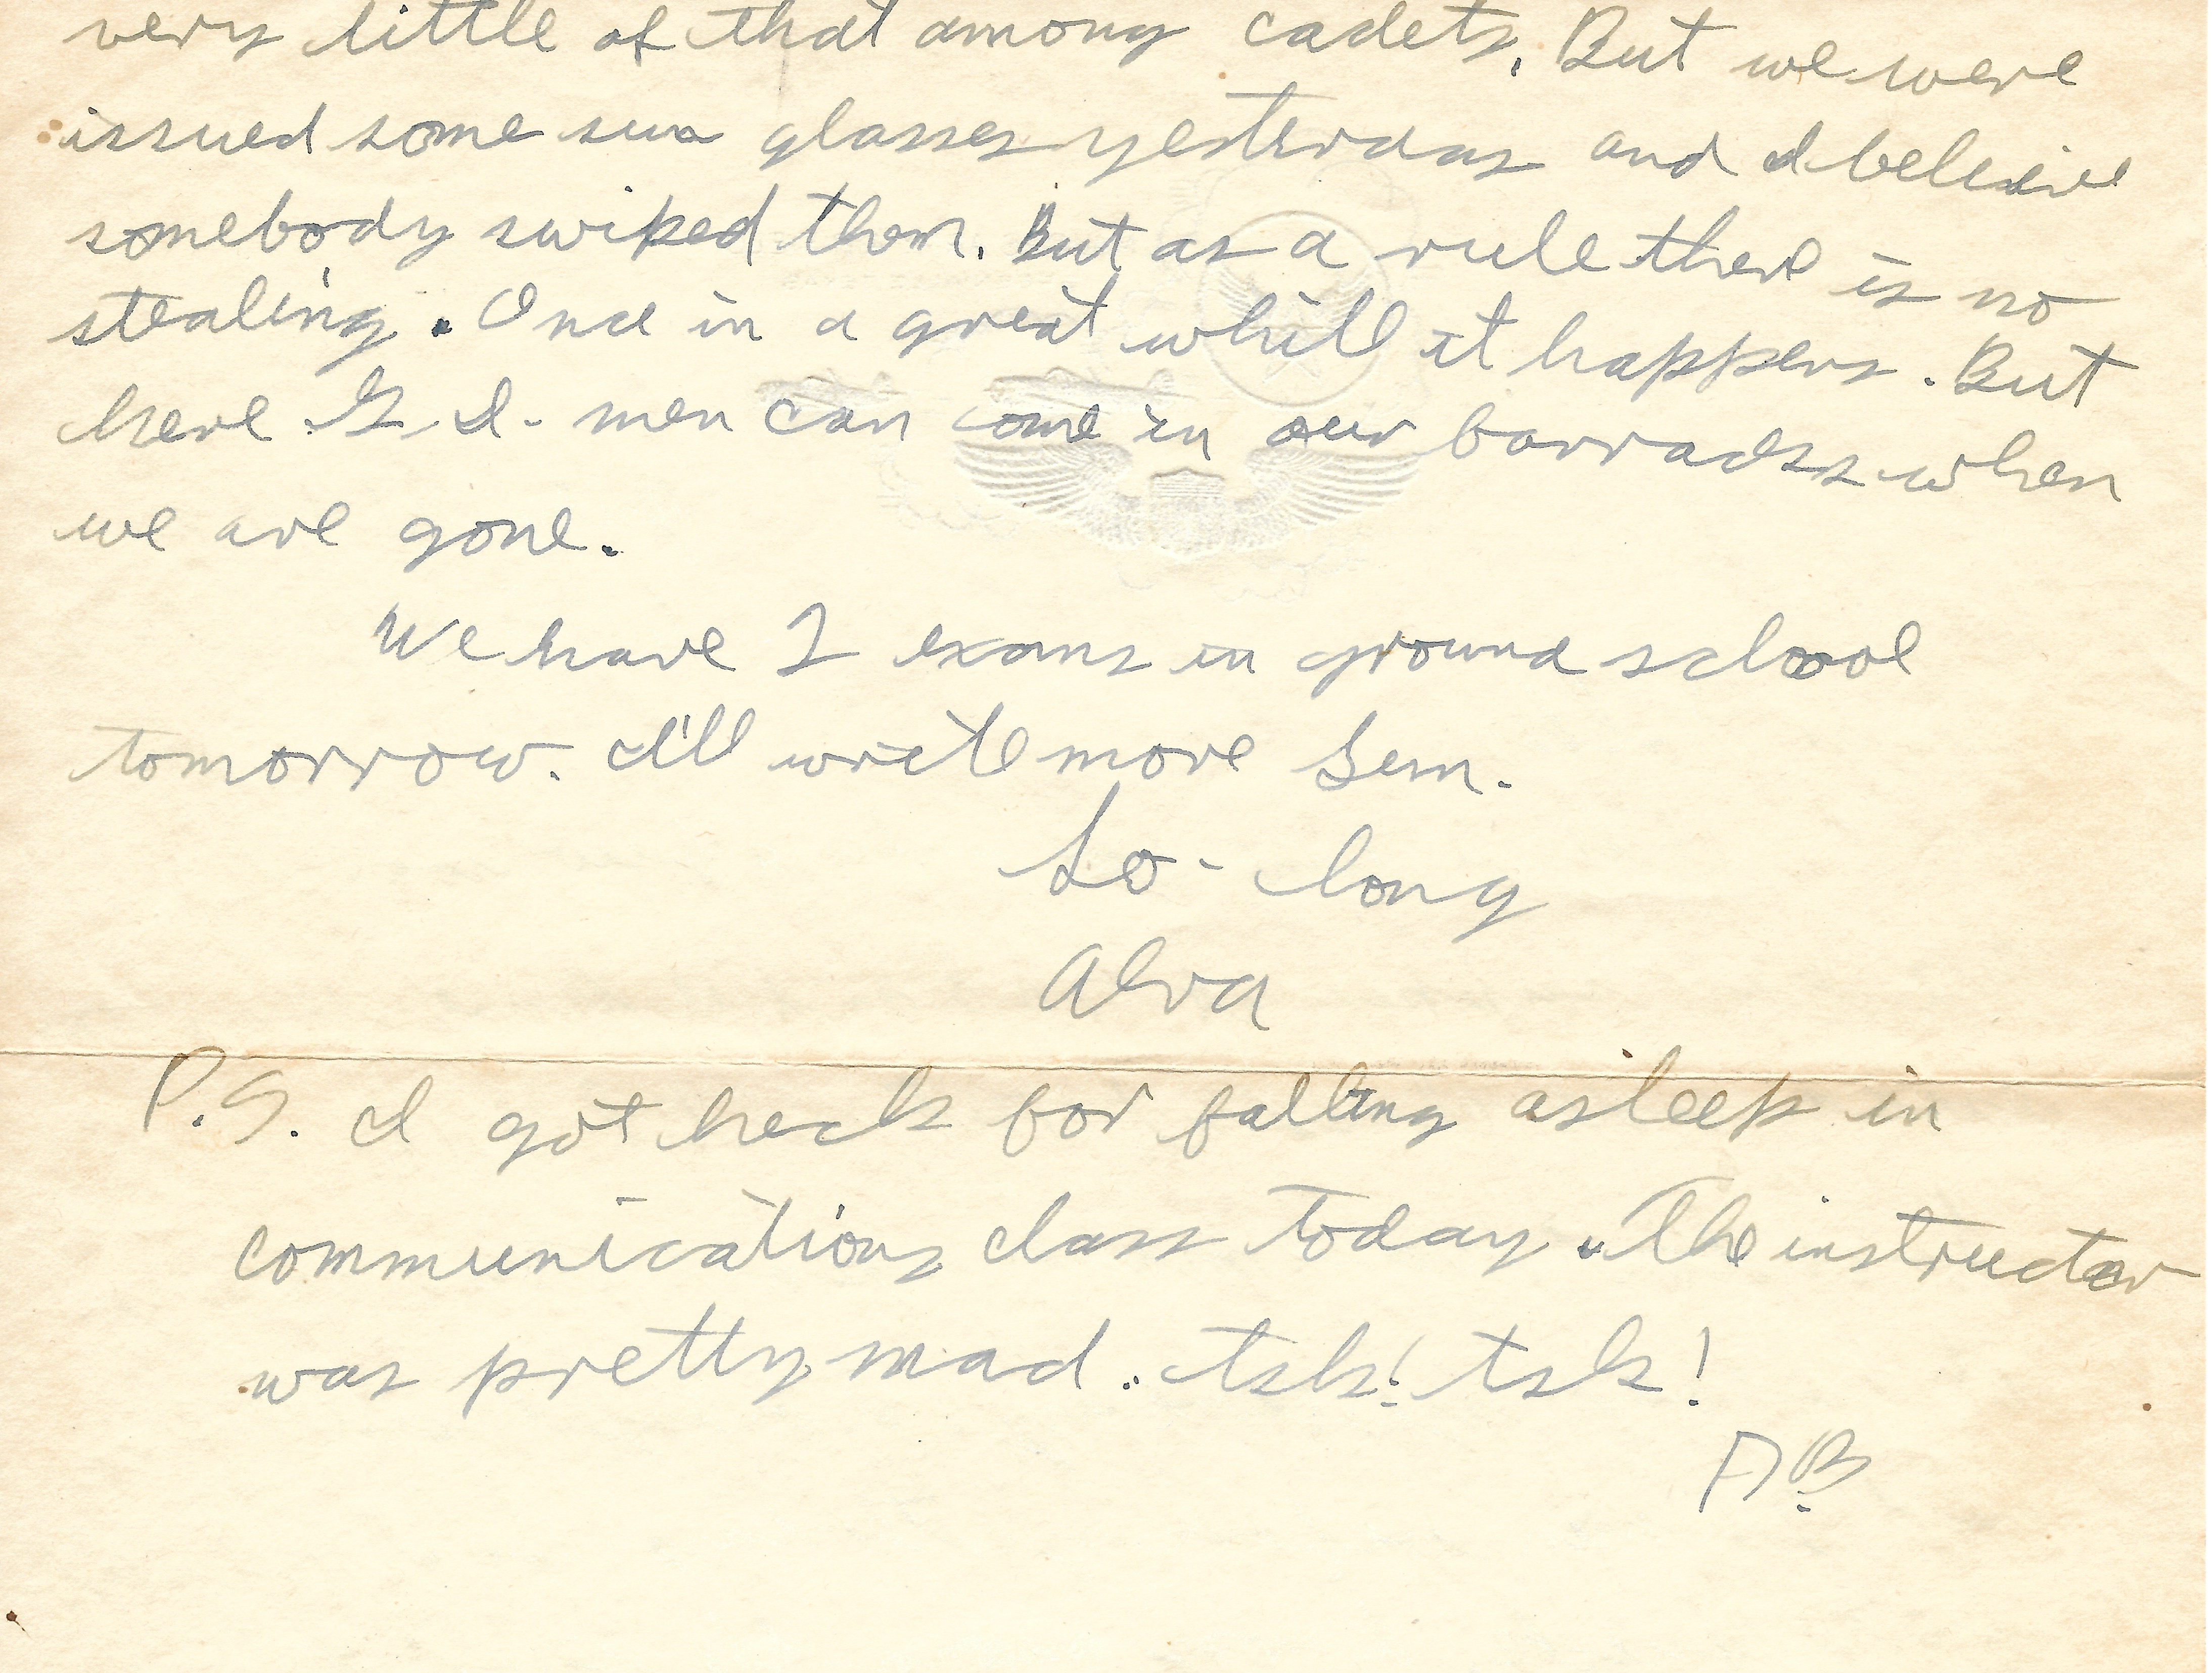 very little of that among cadets. But we were
issued some sun glasses yesterday and I beleive
somebody swiped them. But as a rule there is no
stealing. Once in a great while it happens. But
here G.I. men can come in our barracks when
we are gone.
We have 2 exams in ground school
tomorrow. I'll write more Sun.
So-long
Alva
P.S. I got heck for falling asleep in
communications class today. The instructor
was pretty mad. tsk! tsk!
AB